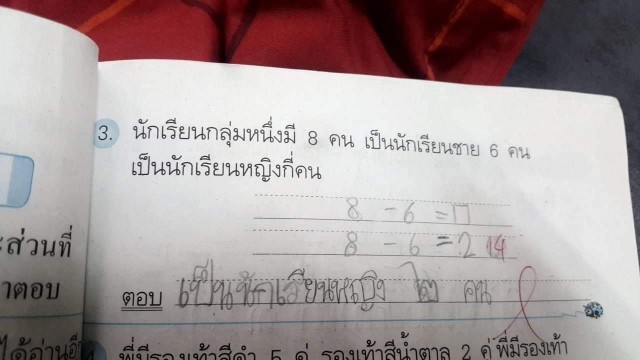 3. นักเรียนกลุ่มหนึ่งมี 8 คน เป็นนักเรียนชาย 6 คน
เป็นนักเรียนหญิงกี่คน
8 - 6 = □
8 - 6 = 2 14
ะส่วนที่
าตอบ
ตอบ เป็นนักเรียนหญิง คน
พี่มีรองเท้าสีดำ 5 คู่ รองเท้าสีน้ำตาล 2 คู่ พี่มีรองเท้า